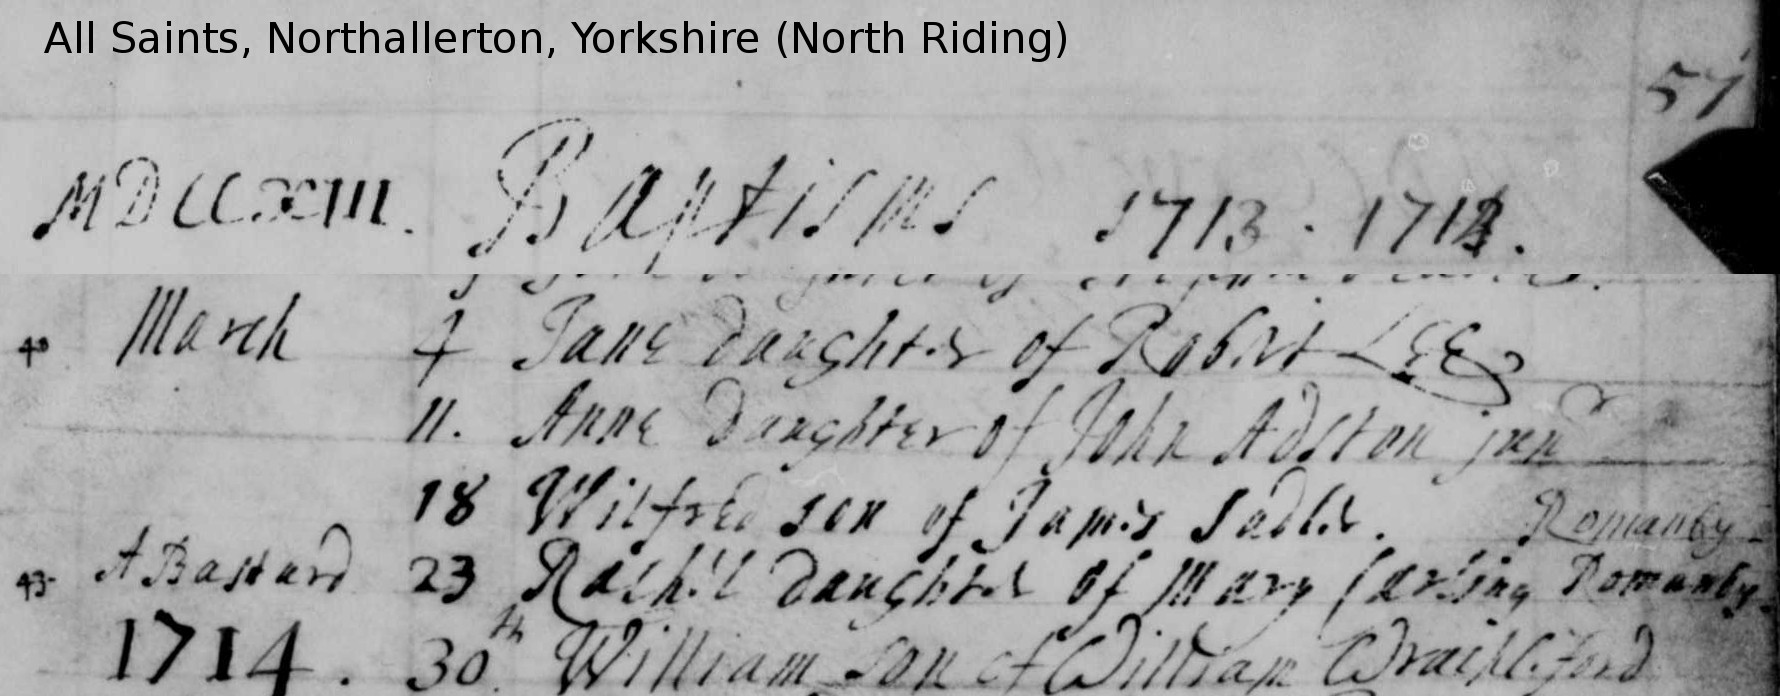 All Saints, Northallerton, Yorkshire (North Riding)
57
MDCCXIII. Baptisms 1713 . 1714.
40 March 4 Jane daughter of Robert LEE
11. Anne daughter of John Adston junr
18 Wilfred son of James Sadler. Romanby
43 A Bastard 23 Rachel daughter of Mary Romanby
1714. 30th William son of William